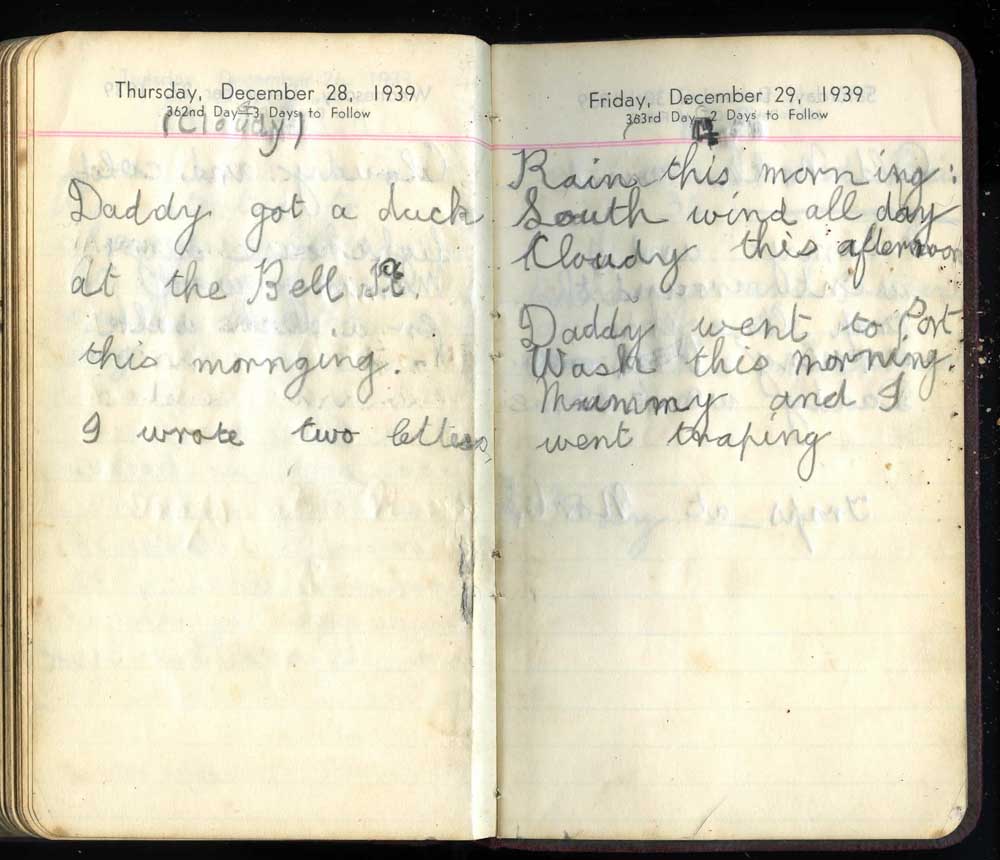 Thursday, December 28, 1939
362nd Day—3 Days to Follow
(Cloudy)
Daddy got a duck
at the Bell Pt.
this mornging.
I wrote two letters,
Friday, December 29, 1939
363rd Day—2 Days to Follow
Rain this morning:
South wind all day
Cloudy this afternoon
Daddy went to Port
Wash this morning.
Mummy and I
went traping